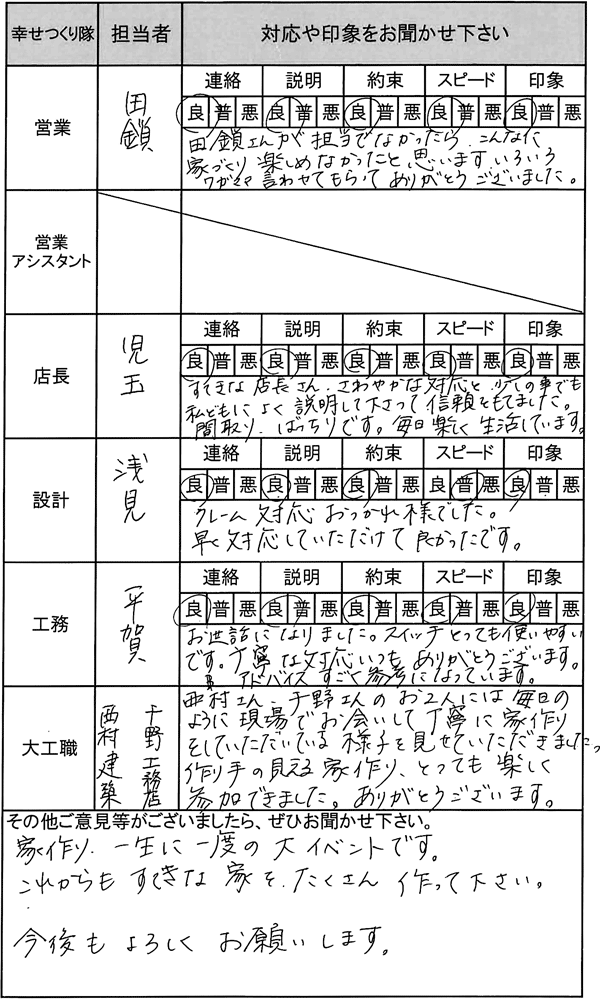 幸せつくり隊 担当者 対応や印象をお聞かせ下さい
営業 田鎖
連絡 説明 約束 スピード 印象
良 普 悪 良 普 悪 良 普 悪 良 普 悪 良 普 悪
田鎖さんが担当でなかったら、こんなに
家づくり楽しめなかったと思います。いろいろ
ワガママ言わせてもらってありがとうございました。
営業
アシスタント
店長 児玉
連絡 説明 約束 スピード 印象
良 普 悪 良 普 悪 良 普 悪 良 普 悪 良 普 悪
すてきな店長さん、さわやかな対応と、少しの事でも
私どもによく説明して下さって信頼をもてました。
間取り、ばっちりです。毎日楽しく生活しています。
設計 浅見
連絡 説明 約束 スピード 印象
良 普 悪 良 普 悪 良 普 悪 良 普 悪 良 普 悪
クレーム対応おつかれ様でした。
早く対応していただけて良かったです。
工務 平賀
連絡 説明 約束 スピード 印象
良 普 悪 良 普 悪 良 普 悪 良 普 悪 良 普 悪
お世話になりました。スイッチとっても使いやすい
です。丁寧な対応いつもありがとうございます。
アドバイスすごく参考になっています。
大工職 千野工務店 西村建築
西村さん、千野さんのお2人には毎日の
ように現場でお会いして丁寧に家作り
をしていただいている様子を見せていただきました。
作り手の見える家作り、とっても楽しく
参加できました。ありがとうございます。
その他ご意見等がございましたら、ぜひお聞かせ下さい。
家作り、一生に一度の大イベントです。
これからもすてきな家を、たくさん作って下さい。
今後もよろしくお願いします。